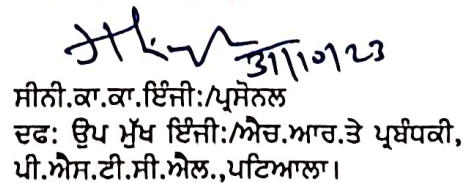 31/10/23
ਸੀਨੀ.ਕਾ.ਕਾ.ਇੰਜੀ:/ਪ੍ਰਸੋਨਲ
ਦਫ: ਉਪ ਮੁੱਖ ਇੰਜੀ:/ਐਚ.ਆਰ.ਤੇ ਪ੍ਰਬੰਧਕੀ,
ਪੀ.ਐਸ.ਟੀ.ਸੀ.ਐਲ.,ਪਟਿਆਲਾ।